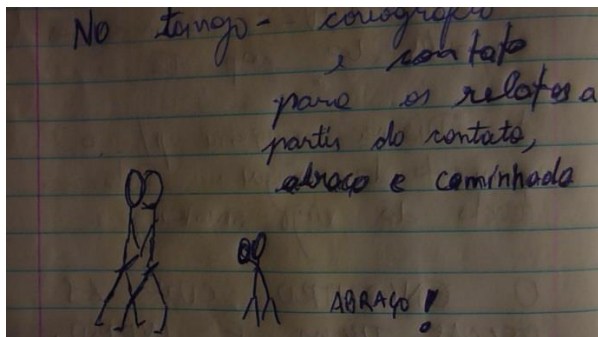 No tango - coreografia
e contato
para os relatos a
partir do contato,
abraço e caminhada
ABRAÇO!